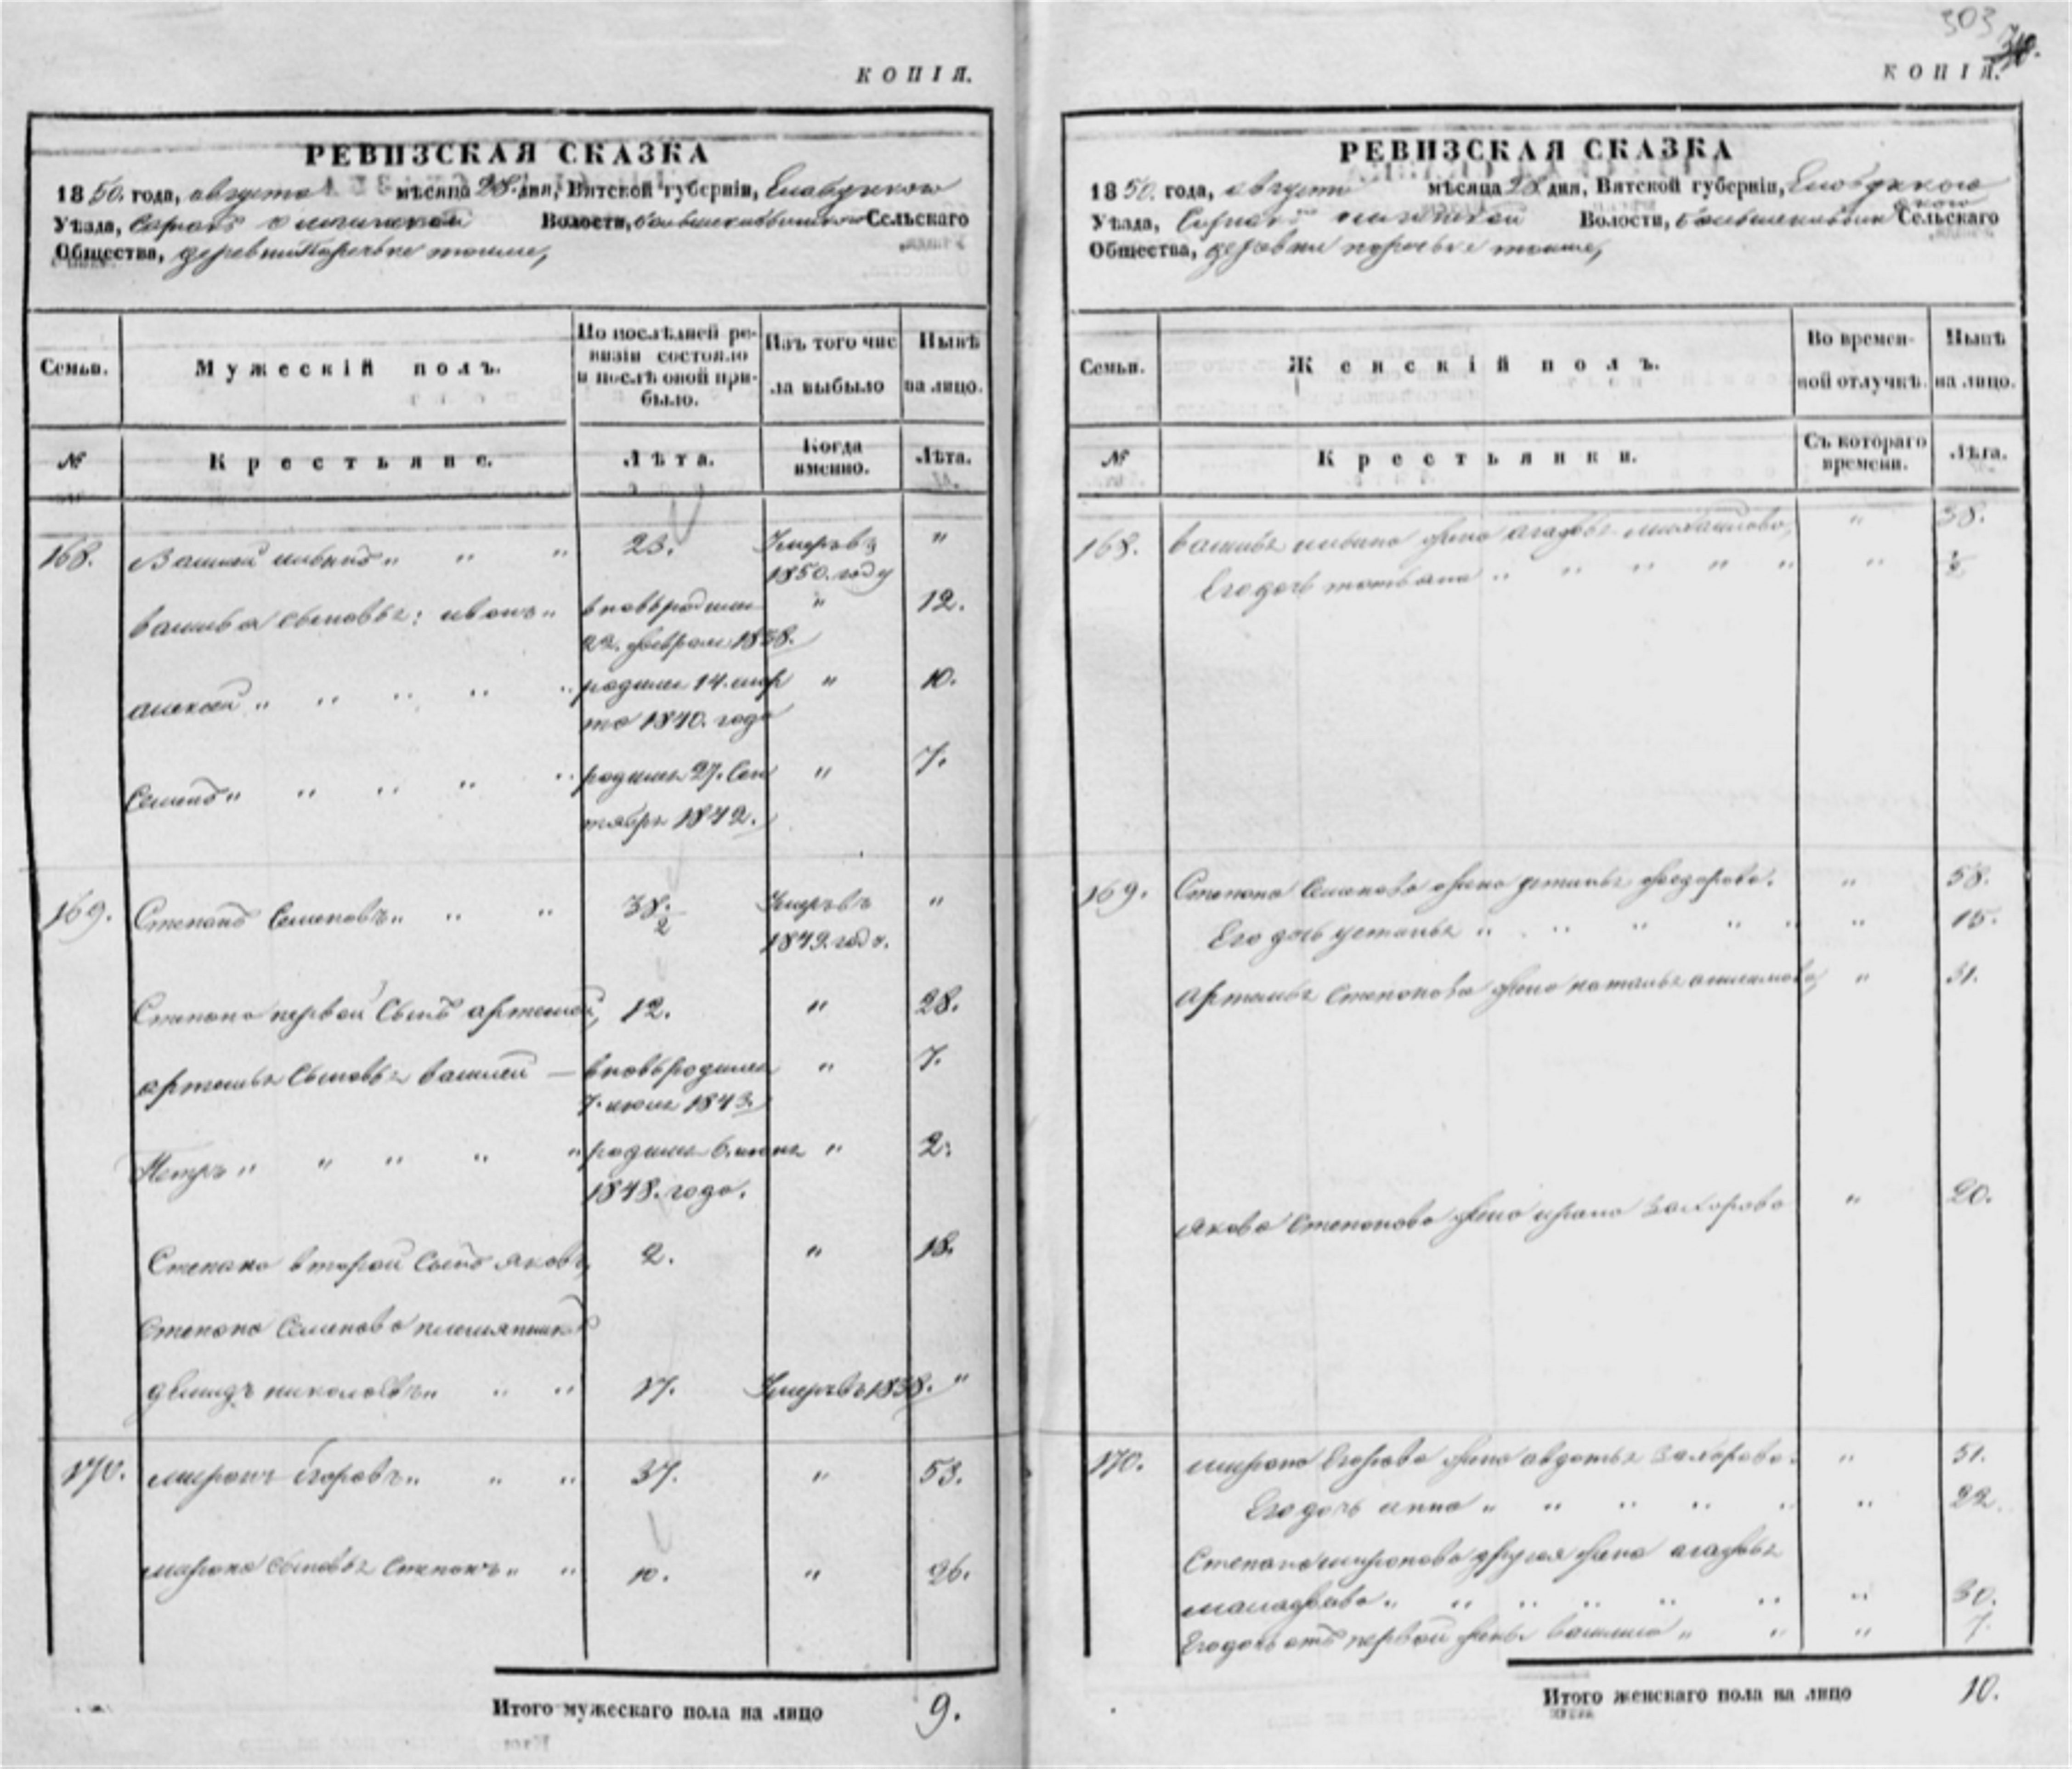 КОПІЯ.
РЕВИЗСКАЯ СКАЗКА
1850. года, августа мѣсяца 28. дня, Вятской губерніи,
Уѣзда, Волости, Сельскаго
Общества, деревни
Семьи.
Мужескій полъ.
По послѣдней ре-
визіи состояло
и послѣ оной при-
было.
Изъ того чис
ла выбыло
Нынѣ
на лицо.
№
Крестьяне.
Лѣта.
Когда
именно.
Лѣта.
168. Василей " " 23. Умеръ въ "
1850. году
Василья сыновья: иванъ " вновь родился " 12.
22. февраля 1838.
алексей " " " " " родился 14. мар " 10.
та 1840. года
Семенъ " " " " " родился 27. Сен " 7.
тября 1842.
169. Степанъ Семеновъ " " " 38. Умеръ въ "
2
1849. году.
Степана первой Сынъ артемей, 12. " 28.
артемья Сыновья василей — вновь родился " 7.
7. 1843.
Петръ " " " " " родился 6. " 2.
1848. года.
Степана второй Сынъ яковъ, 2. " 18.
Степана Семенова племянникъ
демидъ николаевъ " " " 17. Умеръ въ 1838. "
170. миронъ Егоровъ " " " 37. " 53.
мирона сыновья Степанъ " " 10. " 26.
Итого мужескаго пола на лицо 9.
303
КОПІЯ.
РЕВИЗСКАЯ СКАЗКА
1850. года, августа мѣсяца 28 дня, Вятской губерніи,
Уѣзда, Волости, Сельскаго
Общества, деревни
Семьи.
Женскій полъ.
Во времен-
ной отлучкѣ.
Нынѣ
на лицо.
№
Крестьянки.
Съ котораго
времени.
Лѣта.
168. василья жена агафья михайлова, " 38.
Его дочь татьяна " " " " " "
169. Степана Семенова жена устинья федорова. " 58.
Его дочь устинья " " " " " " 15.
артемья Степанова жена наталья " 31.
якова Степанова жена ирина захарова " 20.
170. мирона Егорова жена авдотья захарова. " 51.
Его дочь анна " " " " " " 22.
Степана миронова другая жена агафья
" " " " " " 30.
Его дочь отъ первой жены василиса " " " 7.
Итого женскаго пола на лицо 10.